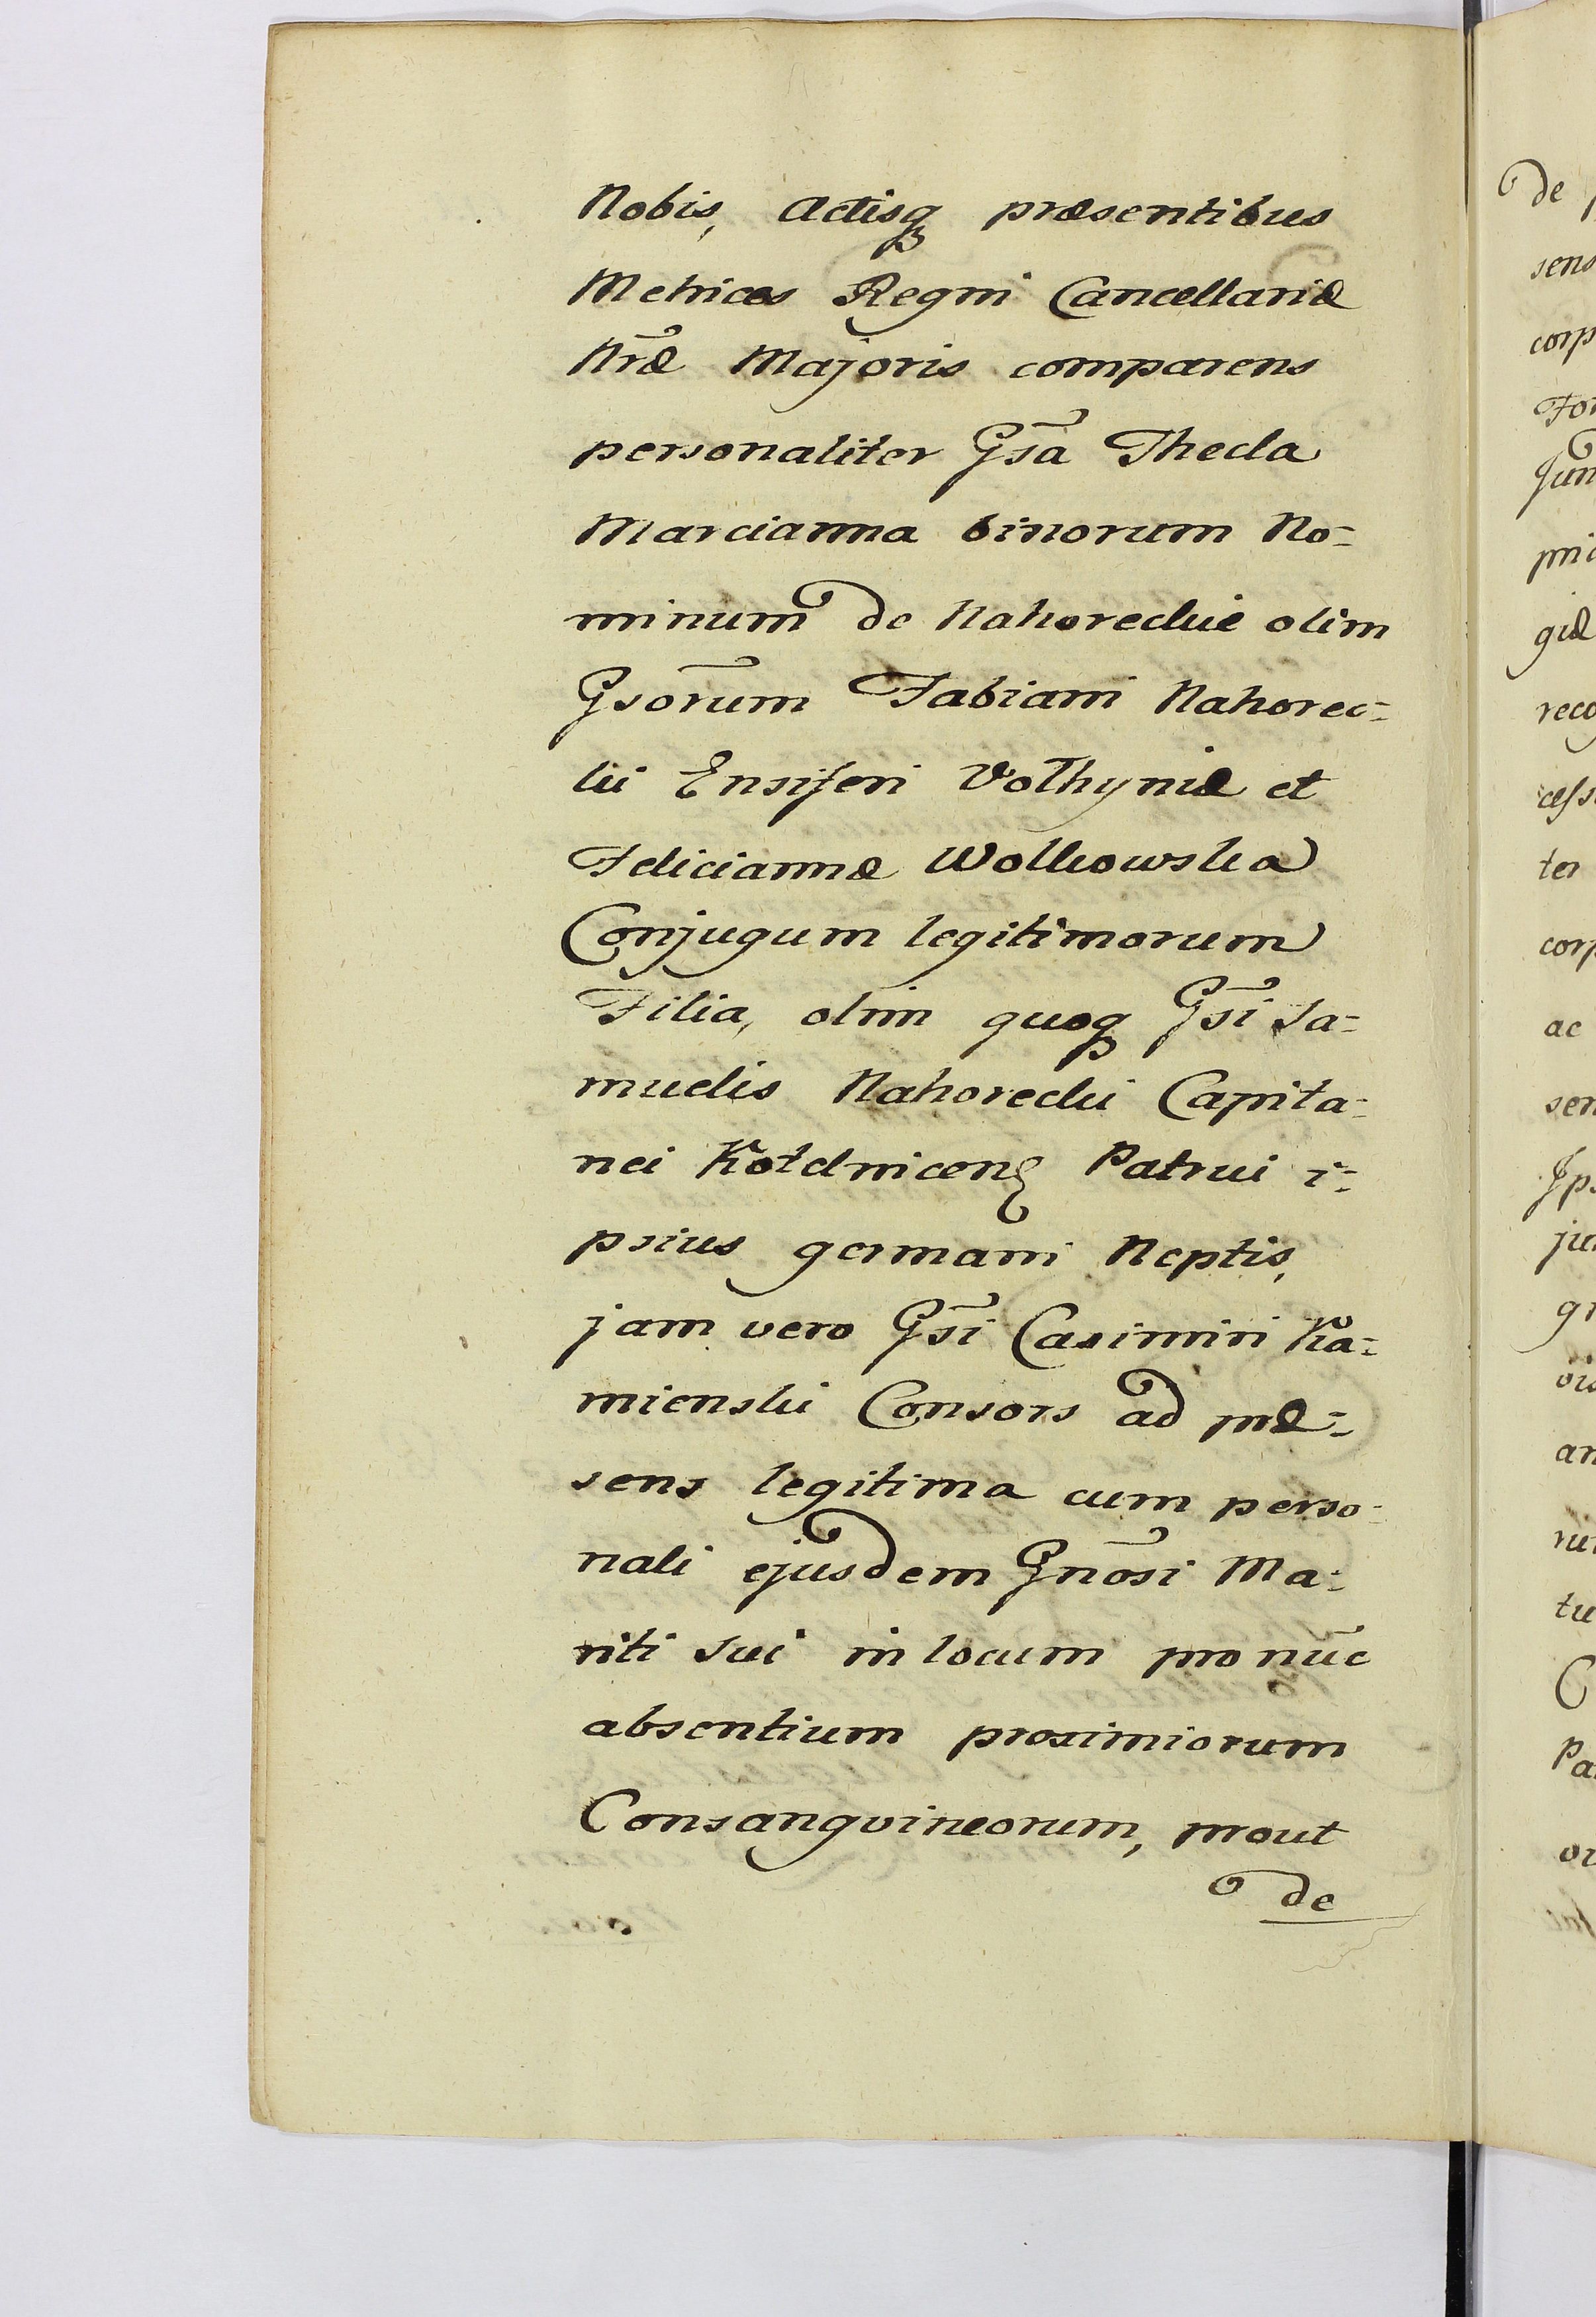 Nobis, Actisq̃ præsentibus
Metrices Regni Cancellariæ
Nr̃æ Majoris comparens
personaliter Gs̃a Thecla
Marcianna binorum No=
minum de Nahoreckie olim
Gsõrum Fabiani Nahorec=
kii Ensiferi Volhyniæ et
Feliciannæ Wolkowska
Conjugum legitimorum
Filia, olim quoq̃ Gs̃i Sa=
muelis Nahorecki Capita=
nei Patrui i=
psius germani Neptis,
jam vero Gs̃i Casimiri Ka=
mienski Consors ad præ=
sens legitima cum perso=
nali ejusdem Gnõsi Ma=
riti sui in locum pro nũc
absentium proximiorum
Consangvineorum, prout
de
de
sens
corp
For
Jun
giæ
reco
cess
ter
corp
ac
sen
Jps
ju
gr
an
tu
C
Pa